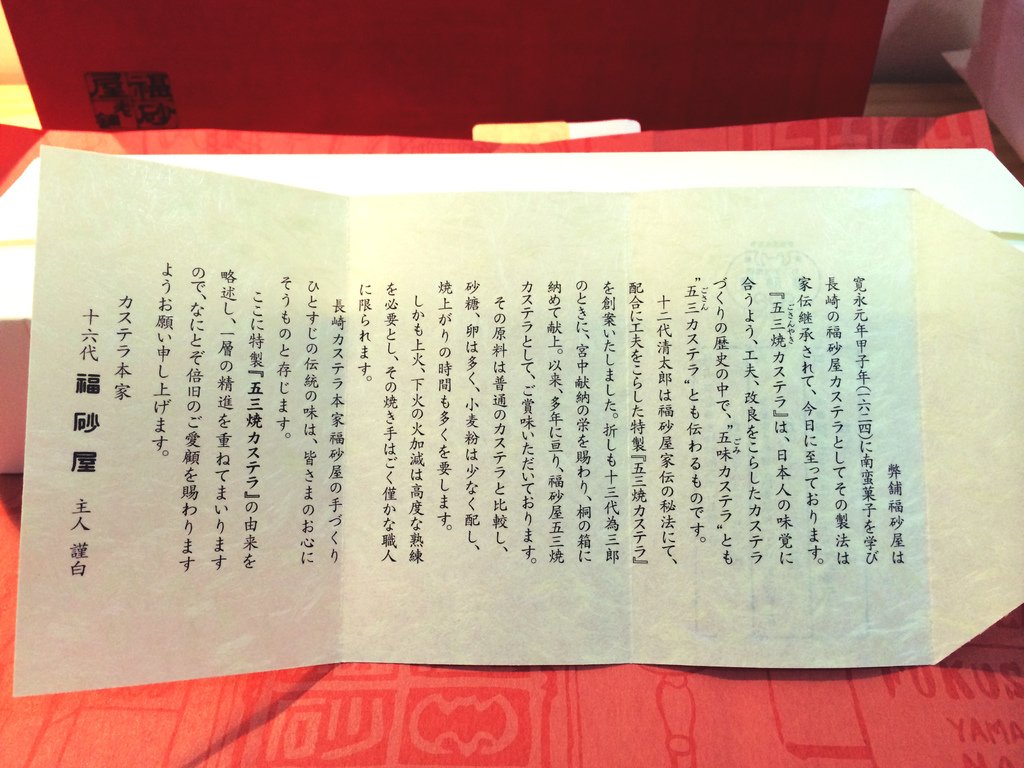 福砂屋
老舗
弊舗福砂屋は
寛永元年甲子年(一六二四)に南蛮菓子を学び
長崎の福砂屋カステラとしてその製法は
家伝継承されて、今日に至っております。
『五三焼カステラ』は、日本人の味覚に
ごさんやき
合うよう、工夫、改良をこらしたカステラ
づくりの歴史の中で、"五味カステラ"とも
ごみ
"五三カステラ"とも伝わるものです。
ごさん
十二代清太郎は福砂屋家伝の秘法にて、
配合に工夫をこらした特製『五三焼カステラ』
を創案いたしました。折しも十三代為三郎
のときに、宮中献納の栄を賜わり、桐の箱に
納めて献上。以来、多年に亘り、福砂屋五三焼
カステラとして、ご賞味いただいております。
その原料は普通のカステラと比較し、
砂糖、卵は多く、小麦粉は少なく配し、
焼上がりの時間も多くを要します。
しかも上火、下火の火加減は高度な熟練
を必要とし、その焼き手はごく僅かな職人
に限られます。
長崎カステラ本家福砂屋の手づくり
ひとすじの伝統の味は、皆さまのお心に
そうものと存じます。
ここに特製『五三焼カステラ』の由来を
略述し、一層の精進を重ねてまいります
ので、なにとぞ倍旧のご愛顧を賜わります
ようお願い申し上げます。
カステラ本家
十六代 福砂屋 主人 謹白
砂
FUKUS
YAMA
NA